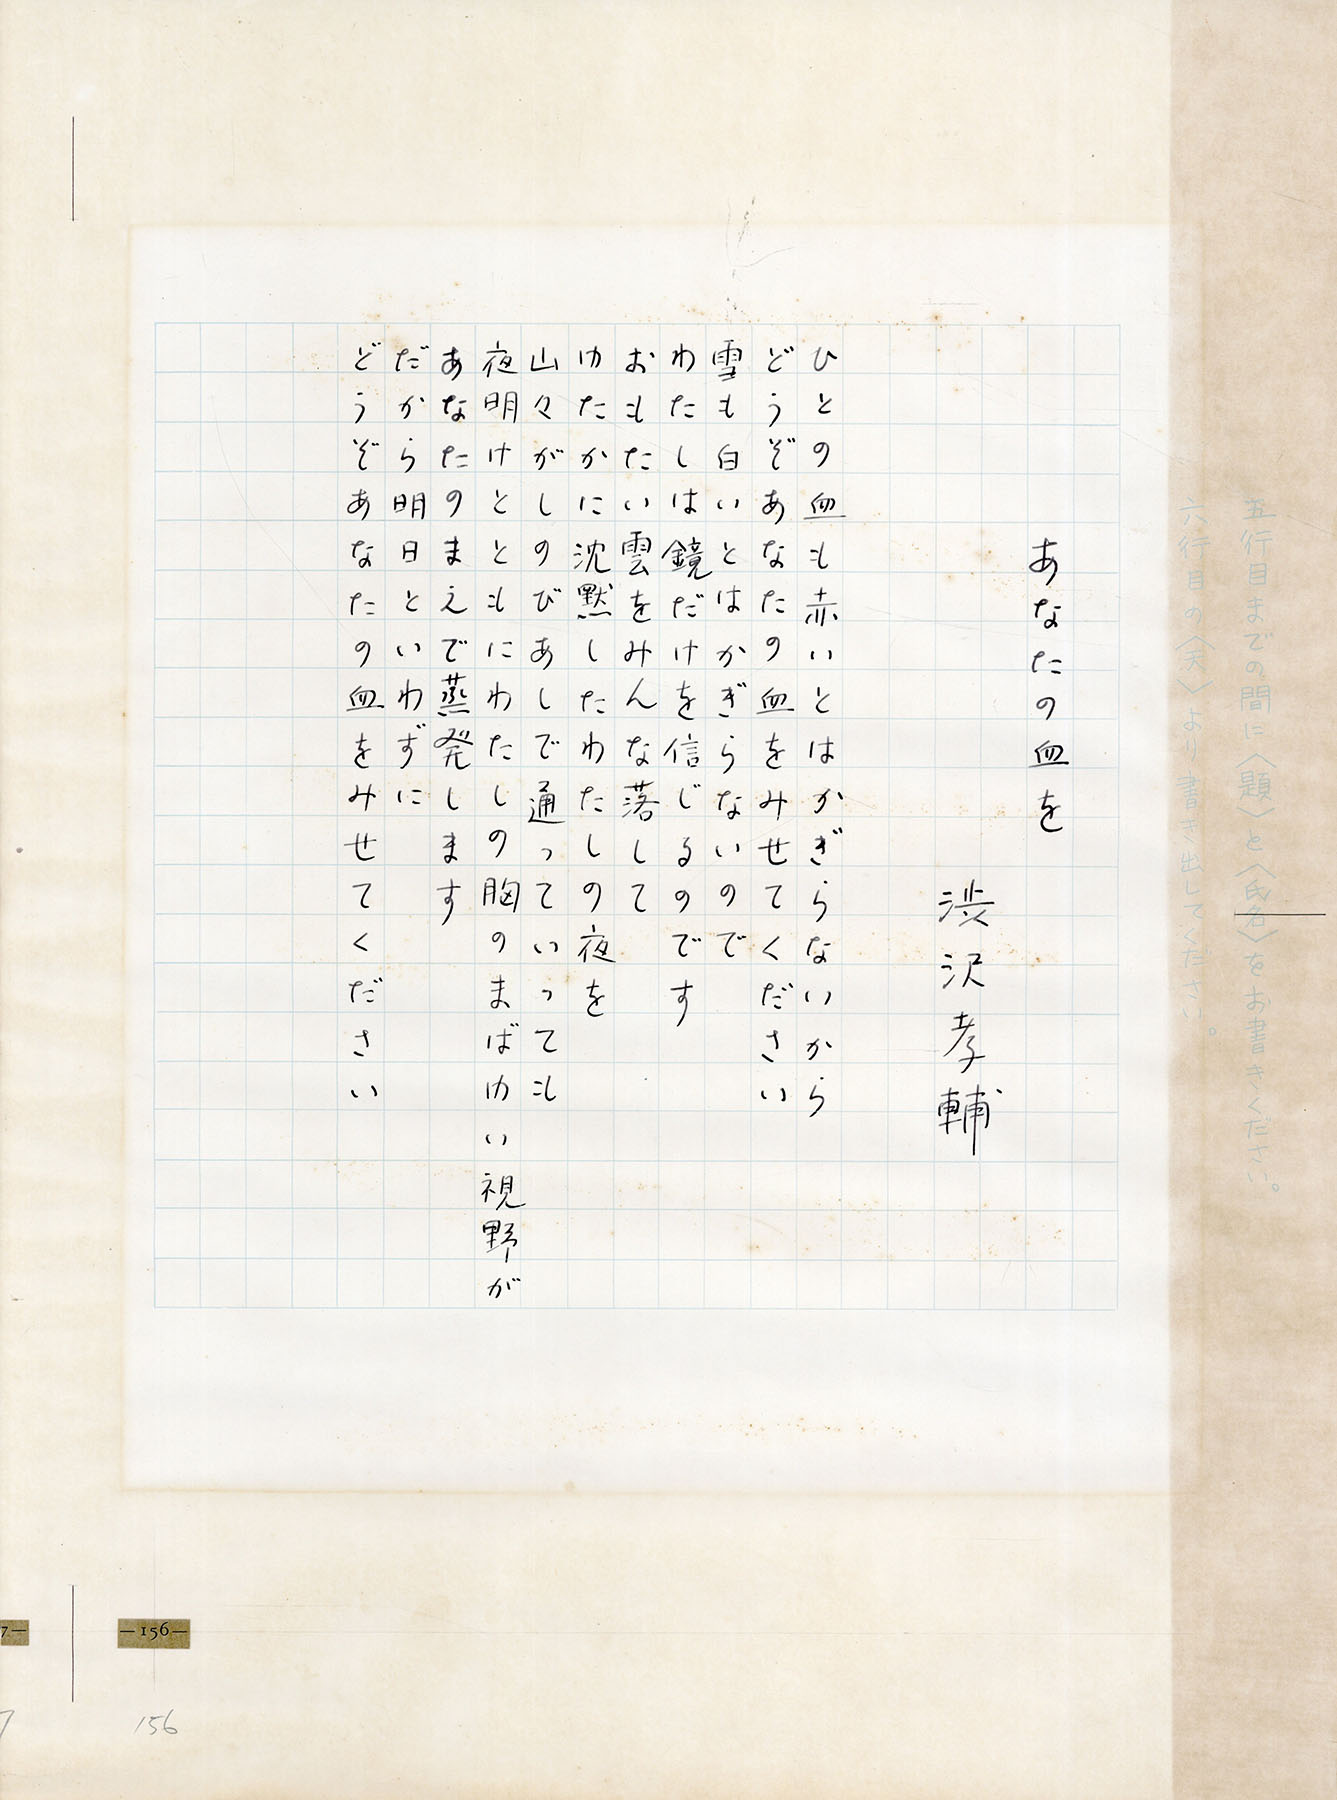 五行目までの間に〈題〉と〈氏名〉をお書きください。
六行目の〈天〉より書き出してください。
あなたの血を
渋沢孝輔
ひとの血も赤いとはかぎらないから
どうぞあなたの血をみせてください
雪も白いとはかぎらないので
わたしは鏡だけを信じるのです
おもたい雲をみんな落して
ゆたかに沈黙したわたしの夜を
山々がしのびあしで通っていっても
夜明けとともにわたしの胸のまばゆい視野が
あなたのまえで蒸発します
だから明日といわずに
どうぞあなたの血をみせてください
7—
—156—
7
156